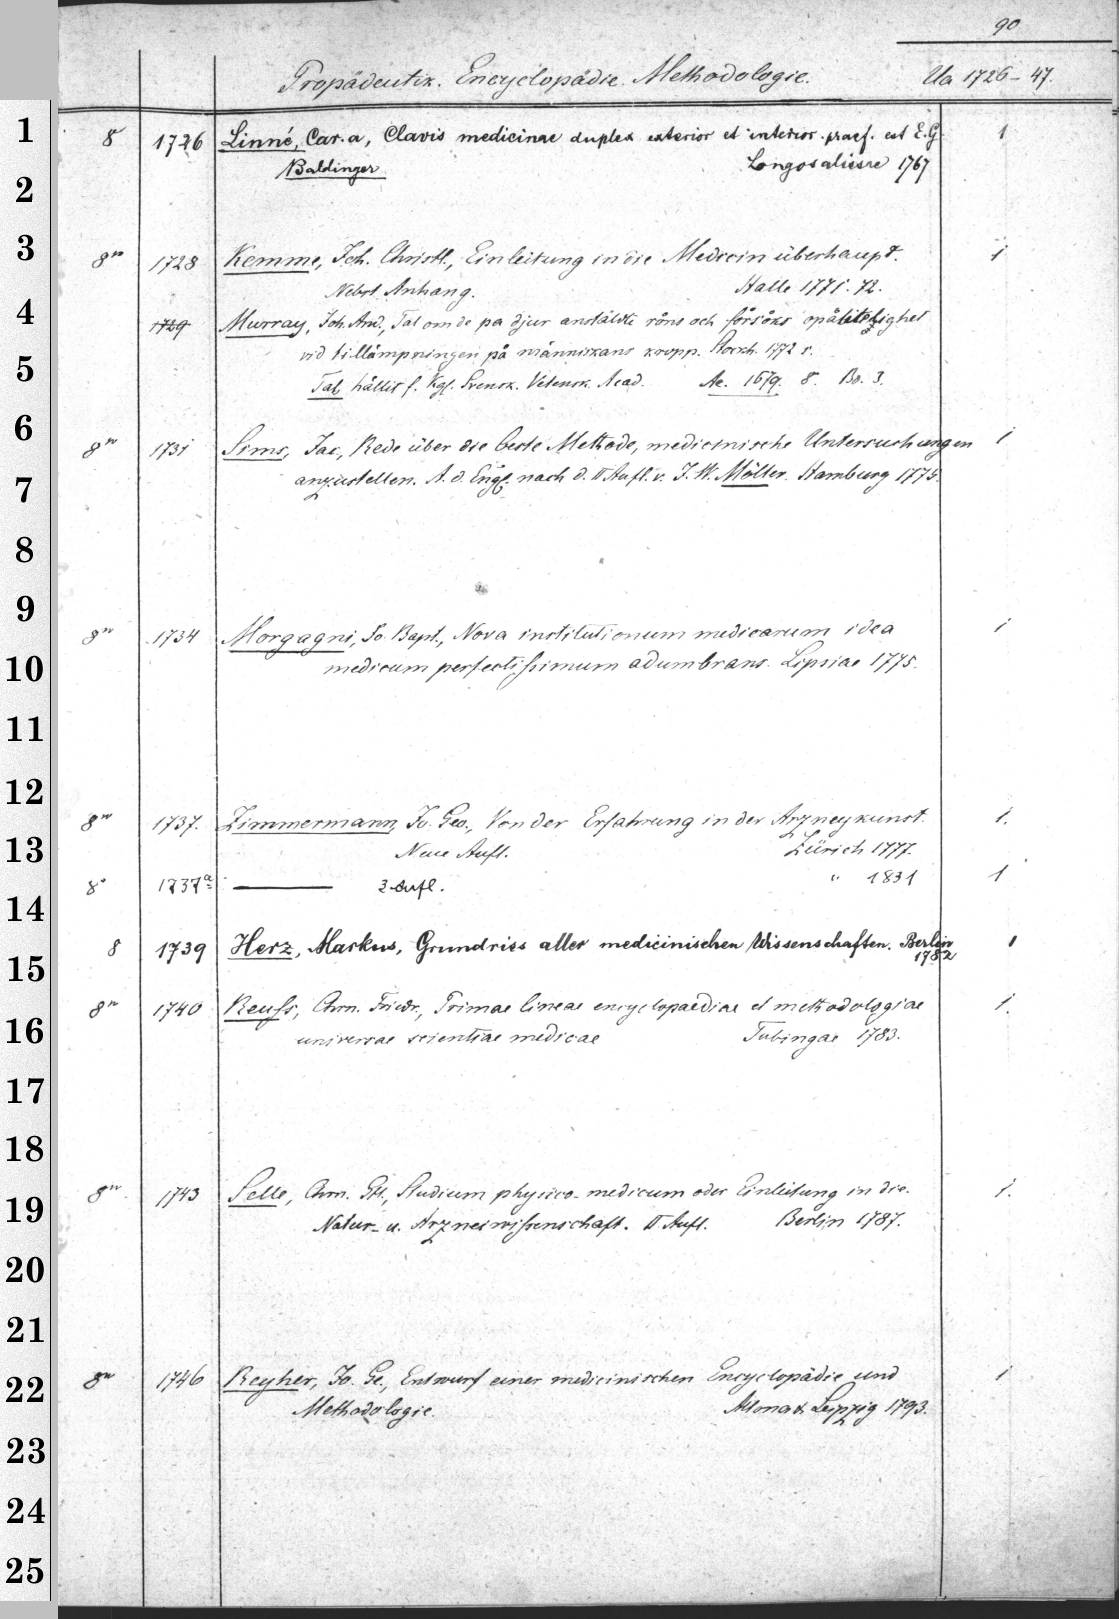 90
Propädeutik. Encyclopädie. Methodologie. Ua 1726-47.
1 8 1726 Linné, Car. a, Clavis medicinae duplex exterior et interior. praef. est E. G. 1
2 Baldinger Longosalissae 1767
3 8º 1728 Kemme, Joh. Christl., Einleitung in die Medicin überhaupt. 1
Nebst Anhang. Halle 1771. 72.
4 1729 Murray, Joh. And., Tal om de pa djur anstälde röns och försöks opålitelighet
5 vid tillämpningen på människans kropp. Stockh. 1772 s.
Tal hållit f. Kgl. Svensk. Vetensk. Acad. Ae. 1679. 8. Bd. 3.
6 8º 1731 Sims, Jac., Rede über die beste Methode, medicinische Untersuchungen 1
7 anzustellen. A. d. Engl. nach d. II Aufl. v. J. W. Möller. Hamburg 1775.
8
9 8º 1734 Morgagni, Jo. Bapt., Nova institutionum medicarum idea 1
10 medicum perfectissimum adumbrans. Lipsiae 1775.
11
12 8º 1737. Zimmermann, Jo. Geo., Von der Erfahrung in der Arzneykunst. 1.
13 Neue Aufl. Zürich 1777.
8º 1737a ——— 3 Aufl. " 1831 1
14
8 1739 Herz, Markus, Grundriss aller medicinischen Wissenschaften. Berlin 1
15 1782
8º 1740 Reuss, Chrn. Friedr., Primae lineae encyclopaediae et methodologiae 1.
16 universae scientiae medicae Tubingae 1783.
17
18
19 8º 1743 Selle, Chrn. Gtl., Studium physico-medicum oder Einleitung in die 1.
Natur- u. Arzneiwissenschaft. II Aufl. Berlin 1787.
20
21
22 8º 1746 Reyher, Jo. Ge., Entwurf einer medicinischen Encyclopädie und 1
Methodologie. Altona & Leipzig 1793.
23
24
25